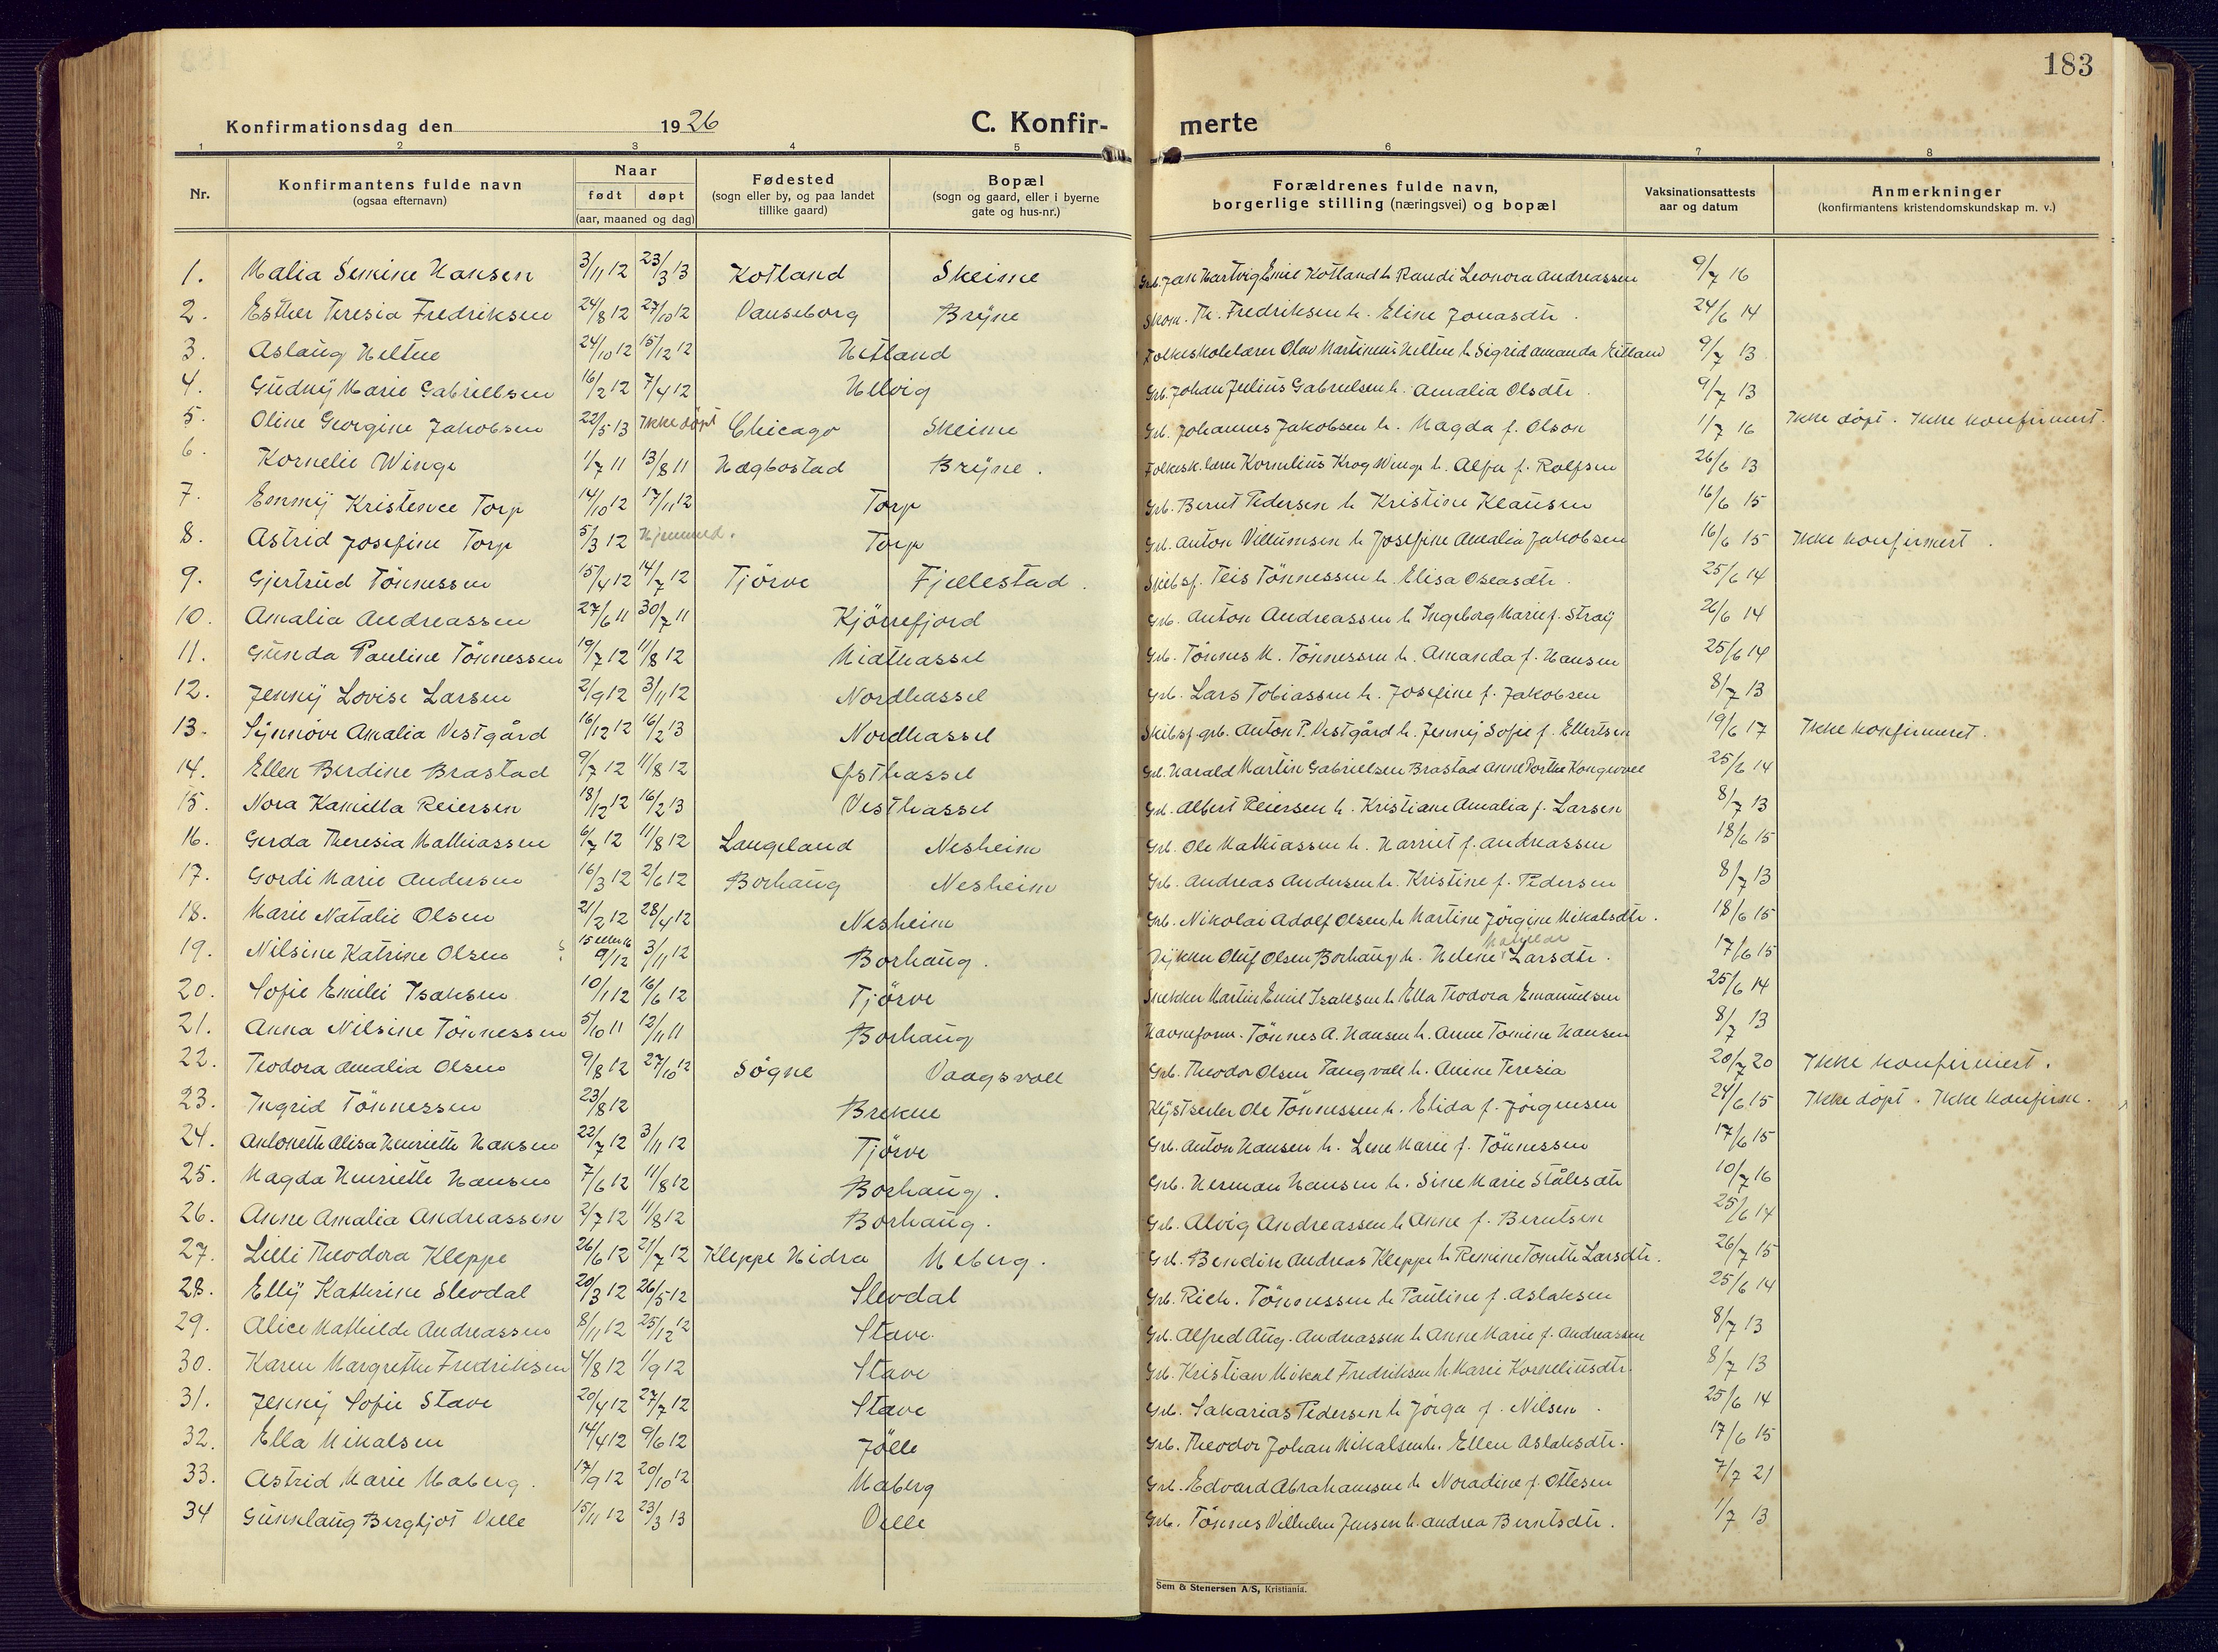 183
Konfirmationsdag den 1926 C. Konfir- merte
1 2 3 4 5 6 7 8
Nr. Konfirmantens fulde navn (ogsaa efternavn) Naar født døpt (aar, maaned og dag) Fødested (sogn eller by, og paa landet tillike gaard) Bopæl (sogn og gaard, eller i byerne gate og hus-nr.) Forældrenes fulde navn, borgerlige stilling (næringsvei) og bopæl Vaksinationsattests aar og datum Anmerkninger (konfirmantens kristendomskundskap m. v.)
1. Malia Semine Hansen 3/11 12 23/3 13 Kotland Skeime Grb. Jan Hartvig Emil Kotland h. Randi Leonora Andreassen 9/7 16
2. Esther Teresia Fredriksen 24/8 12 27/10 12 Vanseborg Bryne Skom. Th. Fredriksen h. Eline Jonasdtr. 24/6 14
3. Aslaug Heltne 24/10 12 15/12 12 Hetland Folkeskolelærer Olav Martinius Heltne h. Sigrid Amanda 9/7 13
4. Gudny Marie Gabrielsen 16/2 12 7/4 12 Helvig Grb. Johan Julius Gabrielsen h. Amalia Olsdtr. 9/7 13
5. Oline Georgine Jakobsen 22/5 13 Ikke döpt Chicago Skeime Grb. Johannes Jakobsen h. Magda f. Olson 1/7 16 Ikke döpt. Ikke konfirmert.
6. Kornelie Winge 1/7 11 13/8 11 Hægbostad Bryne. Folkesk.lærer Kornelius Krog Winge h. Alfa f. Rolfsen 26/6 13
7. Emmy Kristence Torp 14/10 12 17/11 12 Torp Grb. Bernt Pedersen h. Kristine Klausen 16/6 15
8. Astrid Josefine Torp 5/3 12 Hjemmed. Torp Grb. Anton Villumsen h. Josefine Amalia Jakobsen 16/6 15 Ikke konfirmert.
9. Gjertrud Tönnessen 15/4 12 14/7 12 Tjörve Fjellestad. Skibsf. Teis Tönnessen h. Elisa Oseasdtr. 25/6 14
10. Amalia Andreassen 27/6 11 30/7 11 Kjörrefjord Grb. Anton Andreassen h. Ingeborg Marie f. Stray 26/6 14
11. Gunda Pauline Tönnessen 19/7 12 11/8 12 Midthassel Grb. Tönnes M. Tönnessen h. Amanda f. Hansen 25/6 14
12. Jenny Lovise Larsen 2/9 12 3/11 12 Nordhassel Grb. Lars Tobiassen h. Josefine f. Jakobsen 8/7 13
13. Synnöve Amalia Vestgård 16/12 12 16/2 13 Nordhassel Skibsf. grb. Anton P. Vestgård h. Jenny Sofie f. Ellertsen 19/6 17 Ikke konfirmeret.
14. Ellen Berdine Brastad 9/7 12 11/8 12 Östhassel Grb. Harald Martin Gabrielsen Brastad Anne Kongevold 25/6 14
15. Nora Kamilla Reiersen 18/12 12 16/2 13 Vesthassel Grb. Albert Reiersen h. Kristiane Amalia f. Larsen 8/7 13
16. Gerda Theresia Mathiassen 6/7 12 11/8 12 Langeland Nesheim Grb. Ole Mathiassen h. Harriet f. Andreassen 18/6 15
17. Gordi Marie Andersen 16/3 12 2/6 12 Borhaug Nesheim Grb. Andreas Andersen h. Kristine f. Pedersen 8/7 13
18. Marie Natalie Olsen 21/2 12 28/4 12 Nesheim Grb. Nikolai Adolf Olsen h. Martine Jörgine Mikalsdtr. 18/6 15
19. Nilsine Katrine Olsen 15 eller 16 9/12 3/11 12 Borhaug. Dykker Oluf Olsen Borhaug h. Helene Larsdtr. 17/6 15
20. Sofie Emilei Isaksen 10/1 12 16/6 12 Tjörve Snekker Martin Emil Isaksen h. Ella Teodora Emanuelsen 25/6 14
21. Anna Nilsine Tönnessen 5/10 11 12/11 11 Borhaug Havneform. Tönnes A. Hansen h. Anne Tomine Hansen 8/7 13
22. Teodora Amalia Olsen 9/8 12 27/10 12 Sögne Vaagsvoll Grb. Theodor Olsen Tangvall h. Anine Teresia 20/7 20 Ikke konfirmert.
23. Ingrid Tönnessen 23/8 12 Brekne Kystseiler Ole Tönnessen h. Elida f. Jörgensen 24/6 15 Ikke döpt. Ikke konfirm.
24. Antonette Alisa Henriette Hansen 22/7 12 3/11 12 Tjörve Grb. Anton Hansen h. Lene Marie f. Tönnessen 17/6 15
25. Magda Henriette Hansen 7/6 12 11/8 12 Borhaug. Grb. Herman Hansen h. Sine Marie Stålesdtr 10/7 16
26. Anne Amalia Andreassen 2/7 12 11/8 12 Borhaug. Grb. Alvig Andreassen h. Anne f. Berntsen 25/6 14
27. Lilli Theodora Kleppe 26/6 12 21/7 12 Kleppe Hidra Meberg. Grb. Bendik Andreas Kleppe h. Remine Tonette Larsdtr. 26/7 15
28. Elly Kathrine Slevdal 20/3 12 26/5 12 Slevdal Grb. Rich. Tönnessen h. Pauline f. Aslaksen 25/6 14
29. Alice Mathilde Andreassen 8/11 12 25/12 12 Stave. Grb. Alfred Aug. Andreassen h. Anne Marie f. Andreassen 8/7 13
30. Karen Margrethe Fredriksen 4/8 12 1/9 12 Stave Grb. Kristian Mikal Fredriksen h. Marie Korneliusdtr. 8/7 13
31. Jenny Sofie Stave 20/4 12 27/7 12 Stave Grb. Sakarias Pedersen h. Jörga f. Nilsen. 25/6 14
32. Ella Mikalsen 14/4 12 9/6 12 Jölle Grb. Theodor Johan Mikalsen h. Ellen Aslaksdtr. 17/6 15
33. Astrid Marie Maberg. 17/9 12 20/10 12 Maberg Grb. Edvard Abrahamsen h. Noradine f. Ottesen 7/7 21
34 Gunnlaug Bergljot Velle 15/11 12 23/3 13 Velle Grb. Tönnes Vilhelm Jensen h. Andrea Berntsdtr. 1/7 13
Sem & Stenersen A/S, Kristiania.